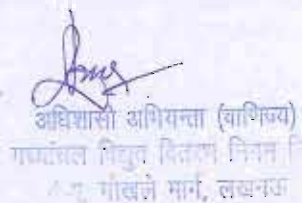 अधिशासी अभियन्ता (वाणिज्य)
मध्यांचल विद्युत वितरण निगम लि
गोखले मार्ग, लखनऊ